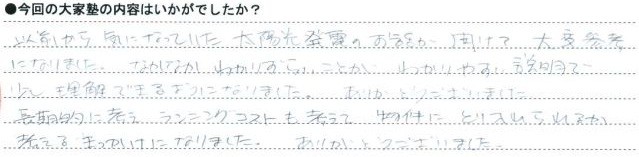 ●今回の大家塾の内容はいかがでしたか？
以前から気になっていた太陽光発電のお話が聞けて、大変参考
になりました。なかなかわかりずらいことが、わかりやすい説明で
少し理解できるようになりました。ありがとうございました
長期的に考え ランニングコストも考えて 物件に とり入れられるか
考えるきっかけになりました。ありがとうございました。